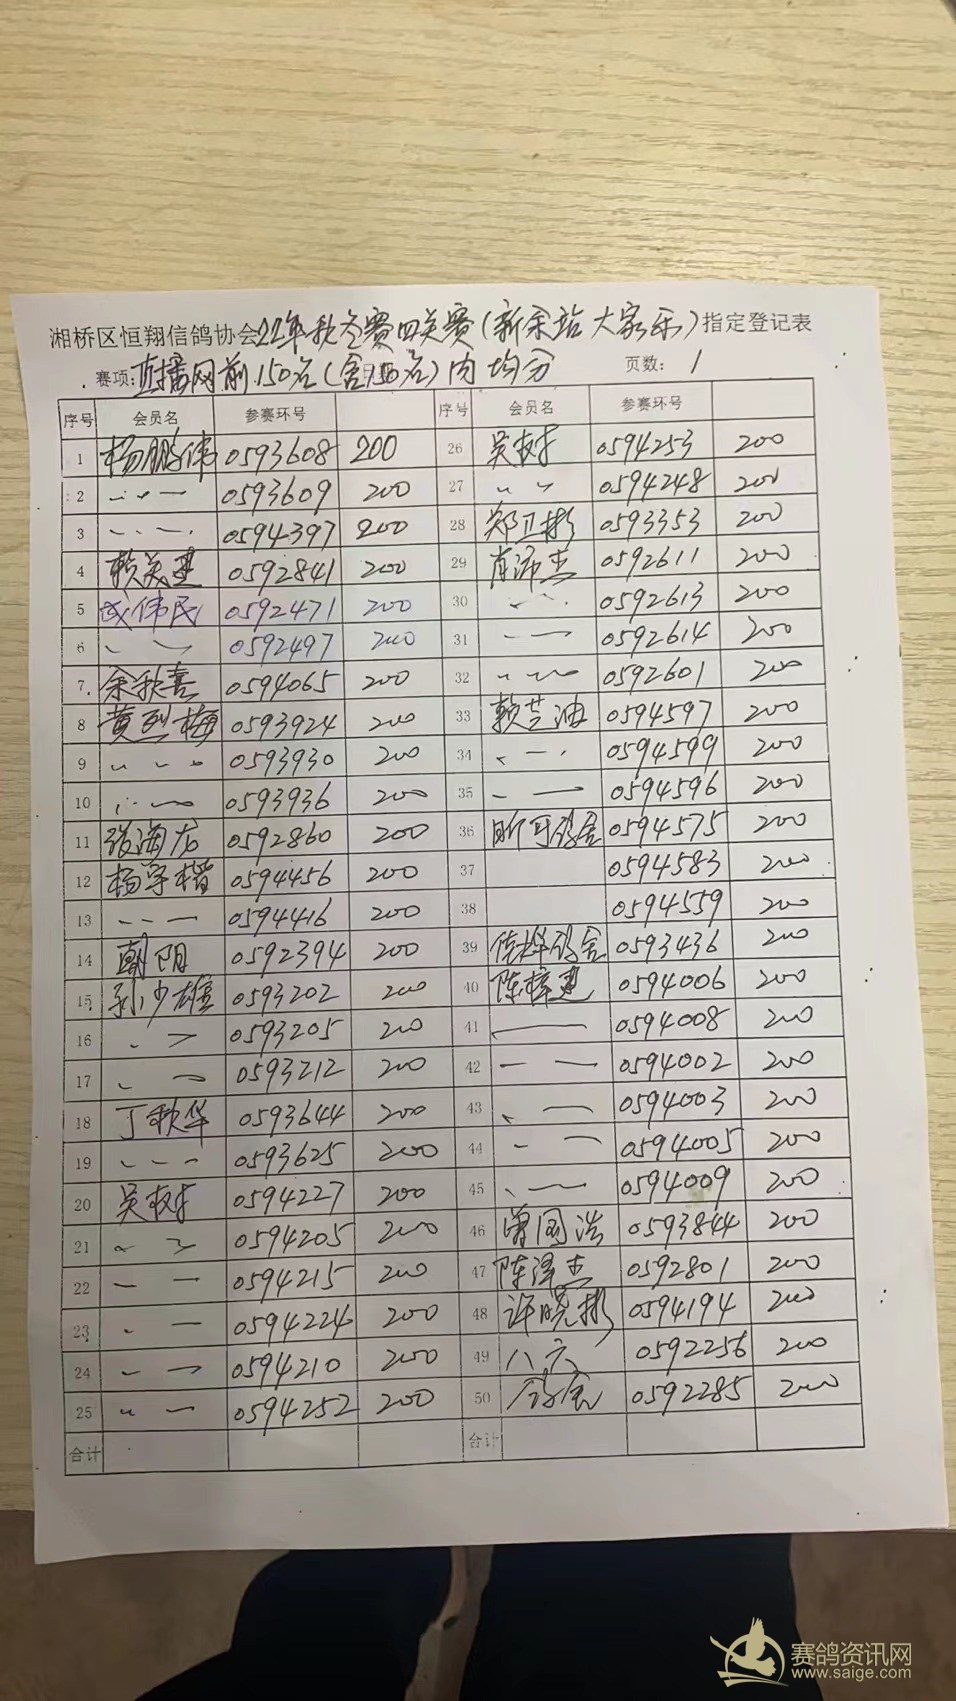 湘桥区恒翔信鸽协会22年秋冬赛四关赛(新余站大家乐)指定登记表
赛项:直播网前150名(含150名)内均分 页数: 1
序号 会员名 参赛环号 序号 会员名 参赛环号
1 杨鹏伟 0593608 200 26 吴树 0594253 200
2 0593609 200 27 0594248 200
3 0594397 200 28 郑卫彬 0593353 200
4 赖美建 0592841 200 29 肖沛杰 0592611 200
5 成伟民 0592471 200 30 0592613 200
6 0592497 200 31 0592614 200
7 余秋喜 0594065 200 32 0592601 200
8 黄烈梅 0593924 200 33 赖芝油 0594597 200
9 0593930 200 34 0594599 200
10 0593936 200 35 0594596 200
11 张海龙 0592860 200 36 昕可鸽舍 0594575 200
12 杨学楷 0594456 200 37 0594583 200
13 0594416 200 38 0594559 200
14 朝阳 0592394 200 39 鸽舍 0593436 200
15 孙少雄 0593202 200 40 陈梓建 0594006 200
16 0593205 200 41 0594008 200
17 0593212 200 42 0594002 200
18 丁秋华 0593644 200 43 0594003 200
19 0593625 200 44 0594005 200
20 吴树 0594227 200 45 0594009 200
21 0594205 200 46 曾国浩 0593844 200
22 0594215 200 47 陈泽杰 0592801 200
23 0594224 200 48 许晓彬 0594194 200
24 0594210 200 49 八六 0592256 200
25 0594252 200 50 鸽舍 0592285 200
合计 合计
赛鸽资讯网
www.saige.com